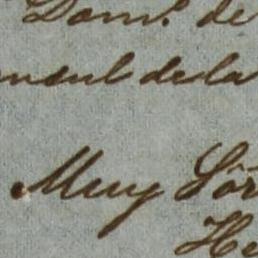 Domº. de
onsul de la
Muy Sõr
He